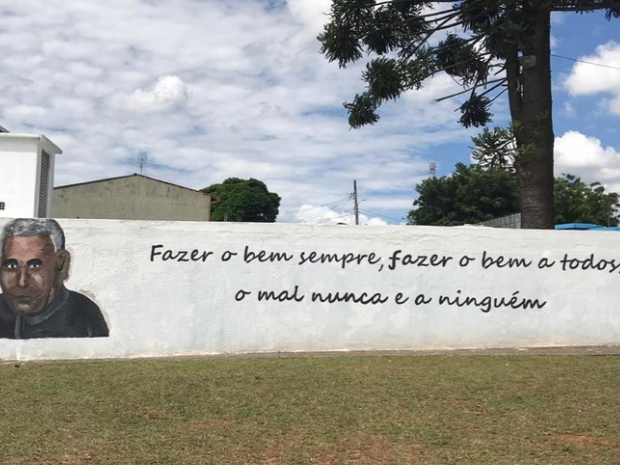 Fazer o bem sempre, fazer o bem a todos,
o mal nunca e a ninguém